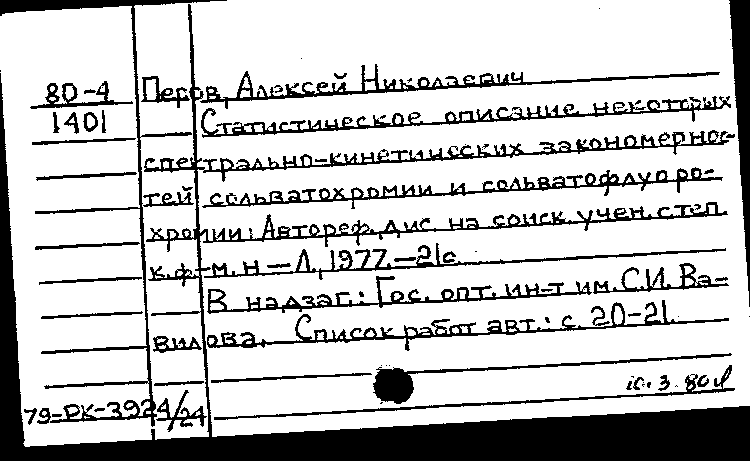 80-4 Перов, Алексей Николаевич
1401 Статистическое описание некоторых
спектрально-кинетических закономернос-
тей сольватохромии и сольватофлуоро-
хромии: Автореф. дис. на соиск. учен. степ.
к.ф-м.н — Л., 1977.—21с.
В надзаг.: Гос. опт. ин-т им. С.И. Ва-
вилова. Список работ авт.: с. 20-21.
10.3.80
79-РК-3924/24